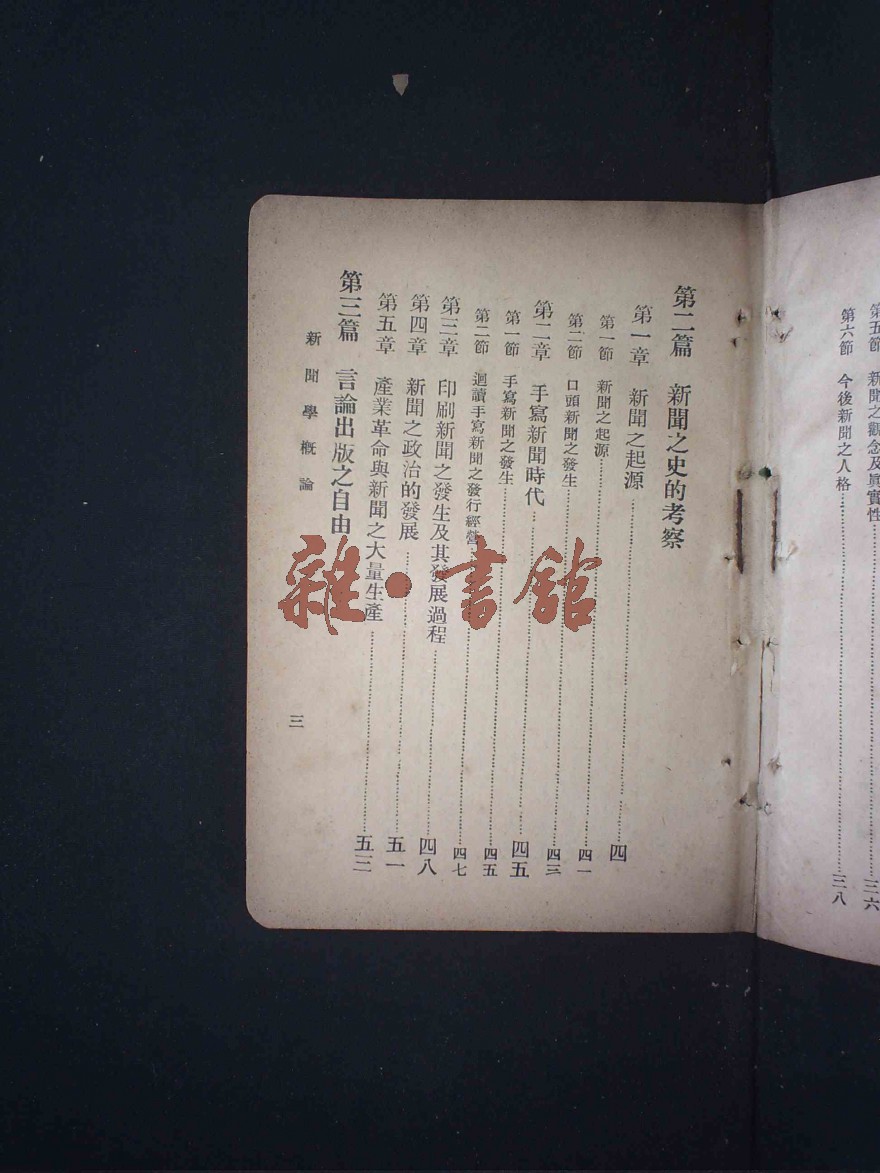 第五節　新聞之觀念及眞實性……三六
第六節　今後新聞之人格……三八
第二篇　新聞之史的考察
第一章　新聞之起源……四
第一節　新聞之起源……四一
第二節　口頭新聞之發生……四三
第二章　手寫新聞時代……四五
第一節　手寫新聞之發生……四五
第二節　迴讀手寫新聞之發行經營……四七
第三章　印刷新聞之發生及其發展過程……四八
第四章　新聞之政治的發展……五一
第五章　產業革命與新聞之大量生產……五三
第三篇　言論出版之自由
新聞學概論
三
雜·書館